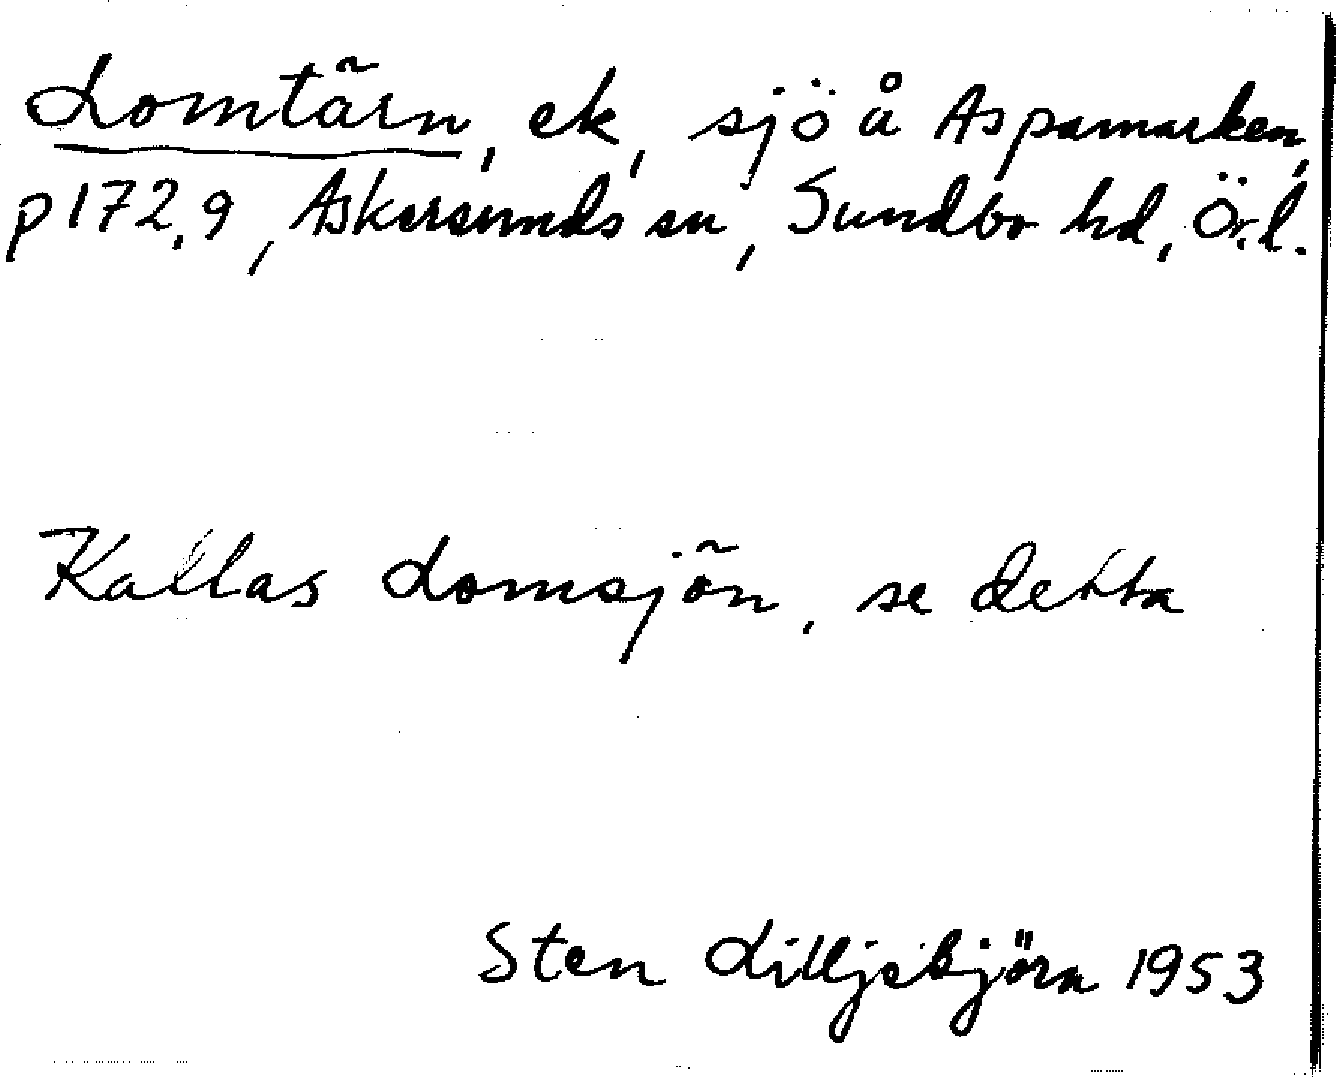 Lomtärn, ek, sjö å Aspamarken,
p 172,9, Askersunds sn, Sundbo hd, Ör.l.
Kallas Lomsjön, se detta
Sten Lilljebjörn 1953